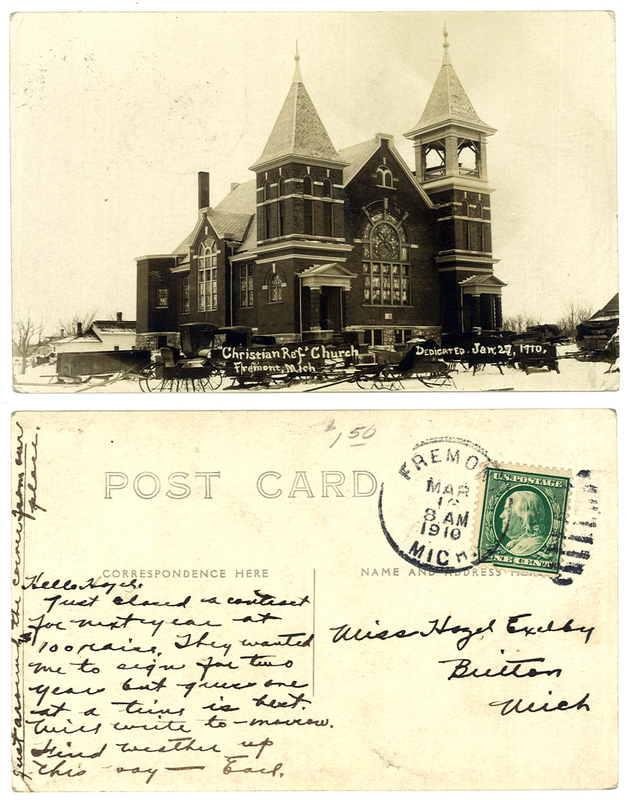 Christian Ref' Church
Fremont, Mich
Dedicated. Jan. 27, 1910.
$1,50
POST CARD
FREMO
MAR
8 AM
1910
MICH.
U.S. POSTAGE
ONE CENT
CORRESPONDENCE HERE
NAME AND ADDRESS HERE
Hello Hazel.
Just closed a contract
for next year at
$100 raise. They wanted
me to sign for two
year but guess one
at a time is best.
Will write to-morrow.
Kind weather up
this way — Earl.
just around the corner from our
place.
Miss Hazel Exelby
Britton
Mich